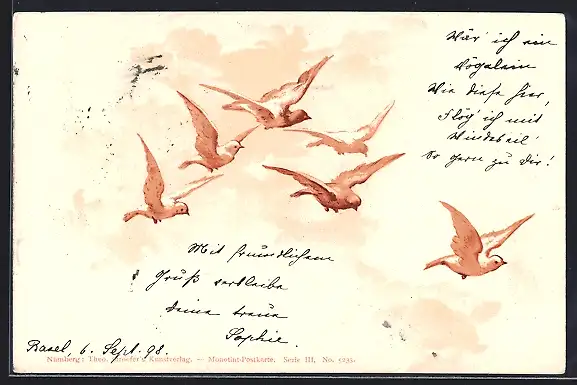 Wär' ich ein
Vögelein
Wie diese hier,
Flög' ich mit
Windeseil'
So gern zu Dir!
Mit freundlichem
Gruß verbleibe
deine treue
Sophie.
Basel, 6. Sept. 98.
Nürnberg: Theo. Stroefer's Kunstverlag. — Monotint-Postkarte. Serie III, No. 5235.